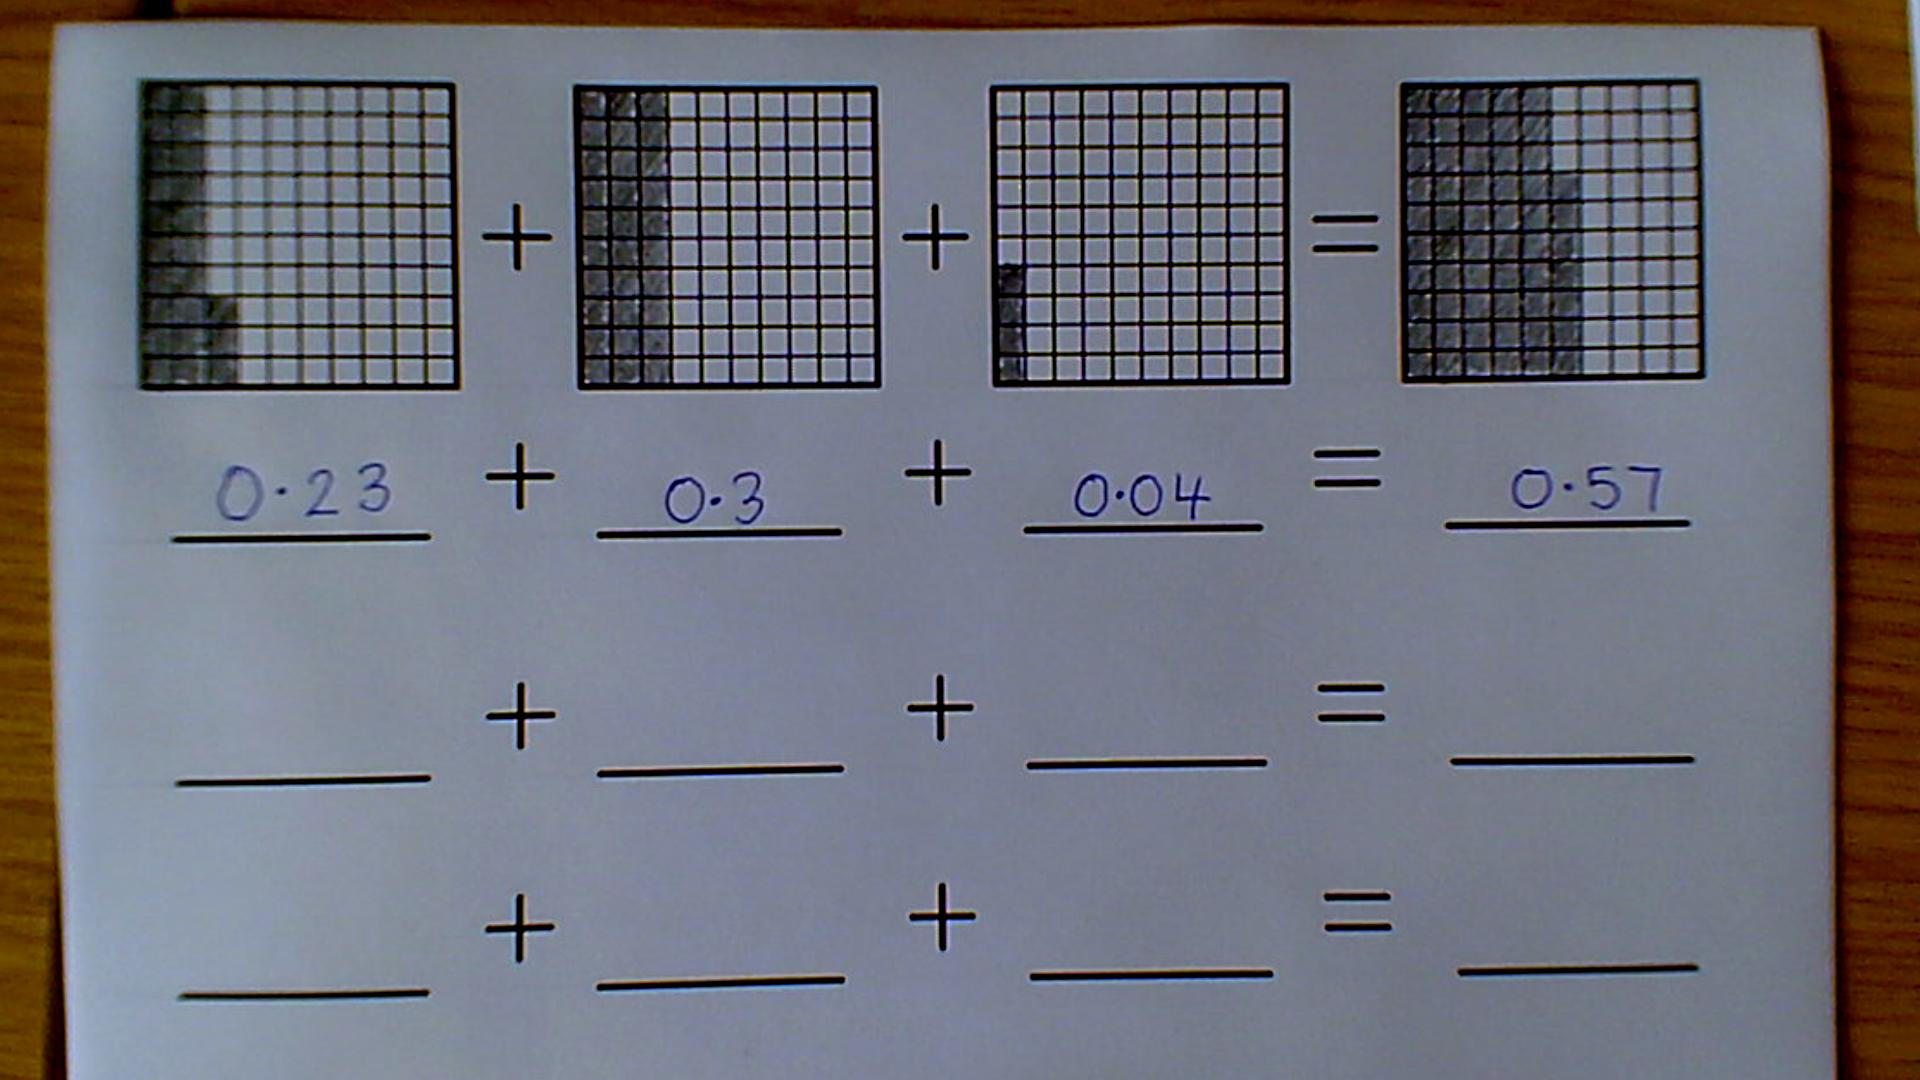 + + =
0.23 + 0.3 + 0.04 = 0.57
+ + =
+ + =